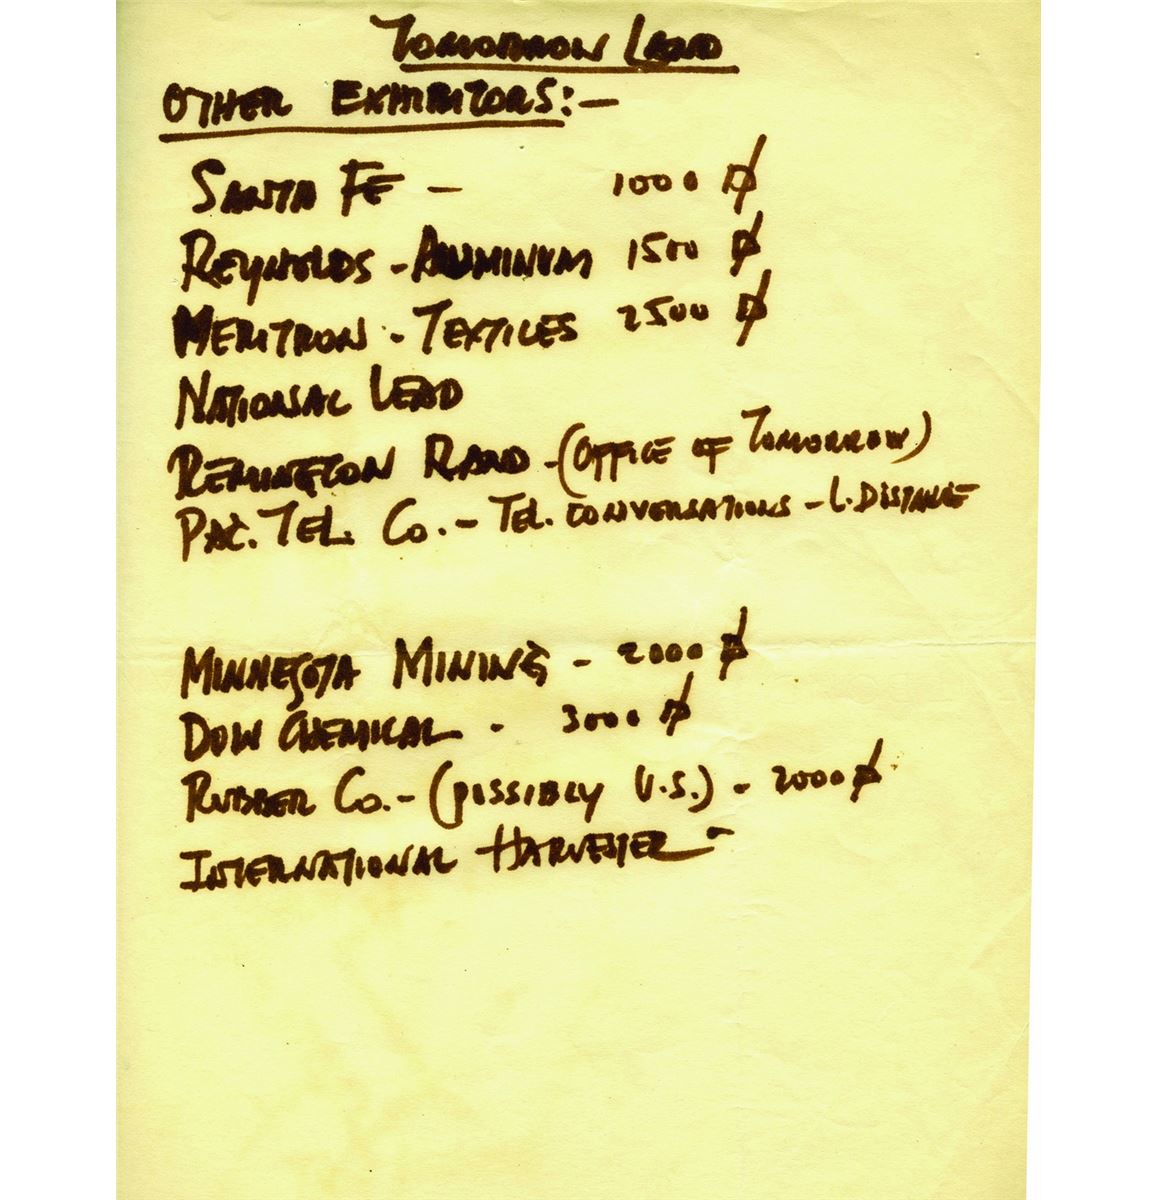 TOMORROW LAND
OTHER EXHIBITORS:—
SANTA FE — 1000 ⏍
REYNOLDS - ALUMINUM 1500 ⏍
MERITRON - TEXTILES 2500 ⏍
NATIONAL LEAD
REMINGTON RAND - (OFFICE OF TOMORROW)
PAC. TEL. CO. - TEL. CONVERSATIONS - L. DISTANCE
MINNESOTA MINING - 2000 ⏍
DOW CHEMICAL - 3000 ⏍
RUBBER CO. - (POSSIBLY U.S.) - 2000 ⏍
INTERNATIONAL HARVESTER -